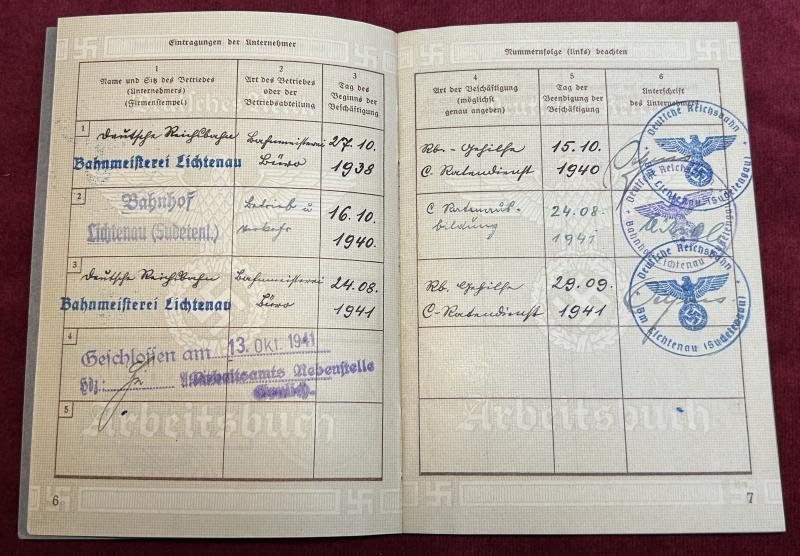 Eintragungen der Unternehmer
1
Name und Sitz des Betriebes
(Unternehmers)
(Firmenstempel)
2
Art des Betriebes
oder der
Betriebsabteilung
3
Tag des
Beginns der
Beschäftigung
1
Deutsche Reichsbahn
Bahnmeisterei Lichtenau
Bahnmeisterei
Büro
27.10.
1938
2
Bahnhof
Lichtenau (Sudetenl.)
Betrieb u
Verkehr
16.10.
1940.
3
Deutsche Reichsbahn
Bahnmeisterei Lichtenau
Bahnmeisterei
Büro
24.08.
1941
4
Geschlossen am 13. Okt. 1941
Hdz:
Arbeitsamts Nebenstelle
5
Arbeitsbuch
6
Nummernfolge (links) beachten
4
Art der Beschäftigung
(möglichst
genau angeben)
5
Tag der
Beendigung der
Beschäftigung
6
Unterschrift
des Unternehmers
Rb-Gehilfe
C. Ratendienst
15.10.
1940
Deutsche Reichsbahn
Lichtenau (Sudetengau)
C Ratenaus-
bildung
24.08.
1941
Deutsche Reichsbahn
Bahnhof Lichtenau
Rb. Gehilfe
C-Ratendienst
29.09.
1941
Deutsche Reichsbahn
Bm Lichtenau (Sudetengau)
Arbeitsbuch
7